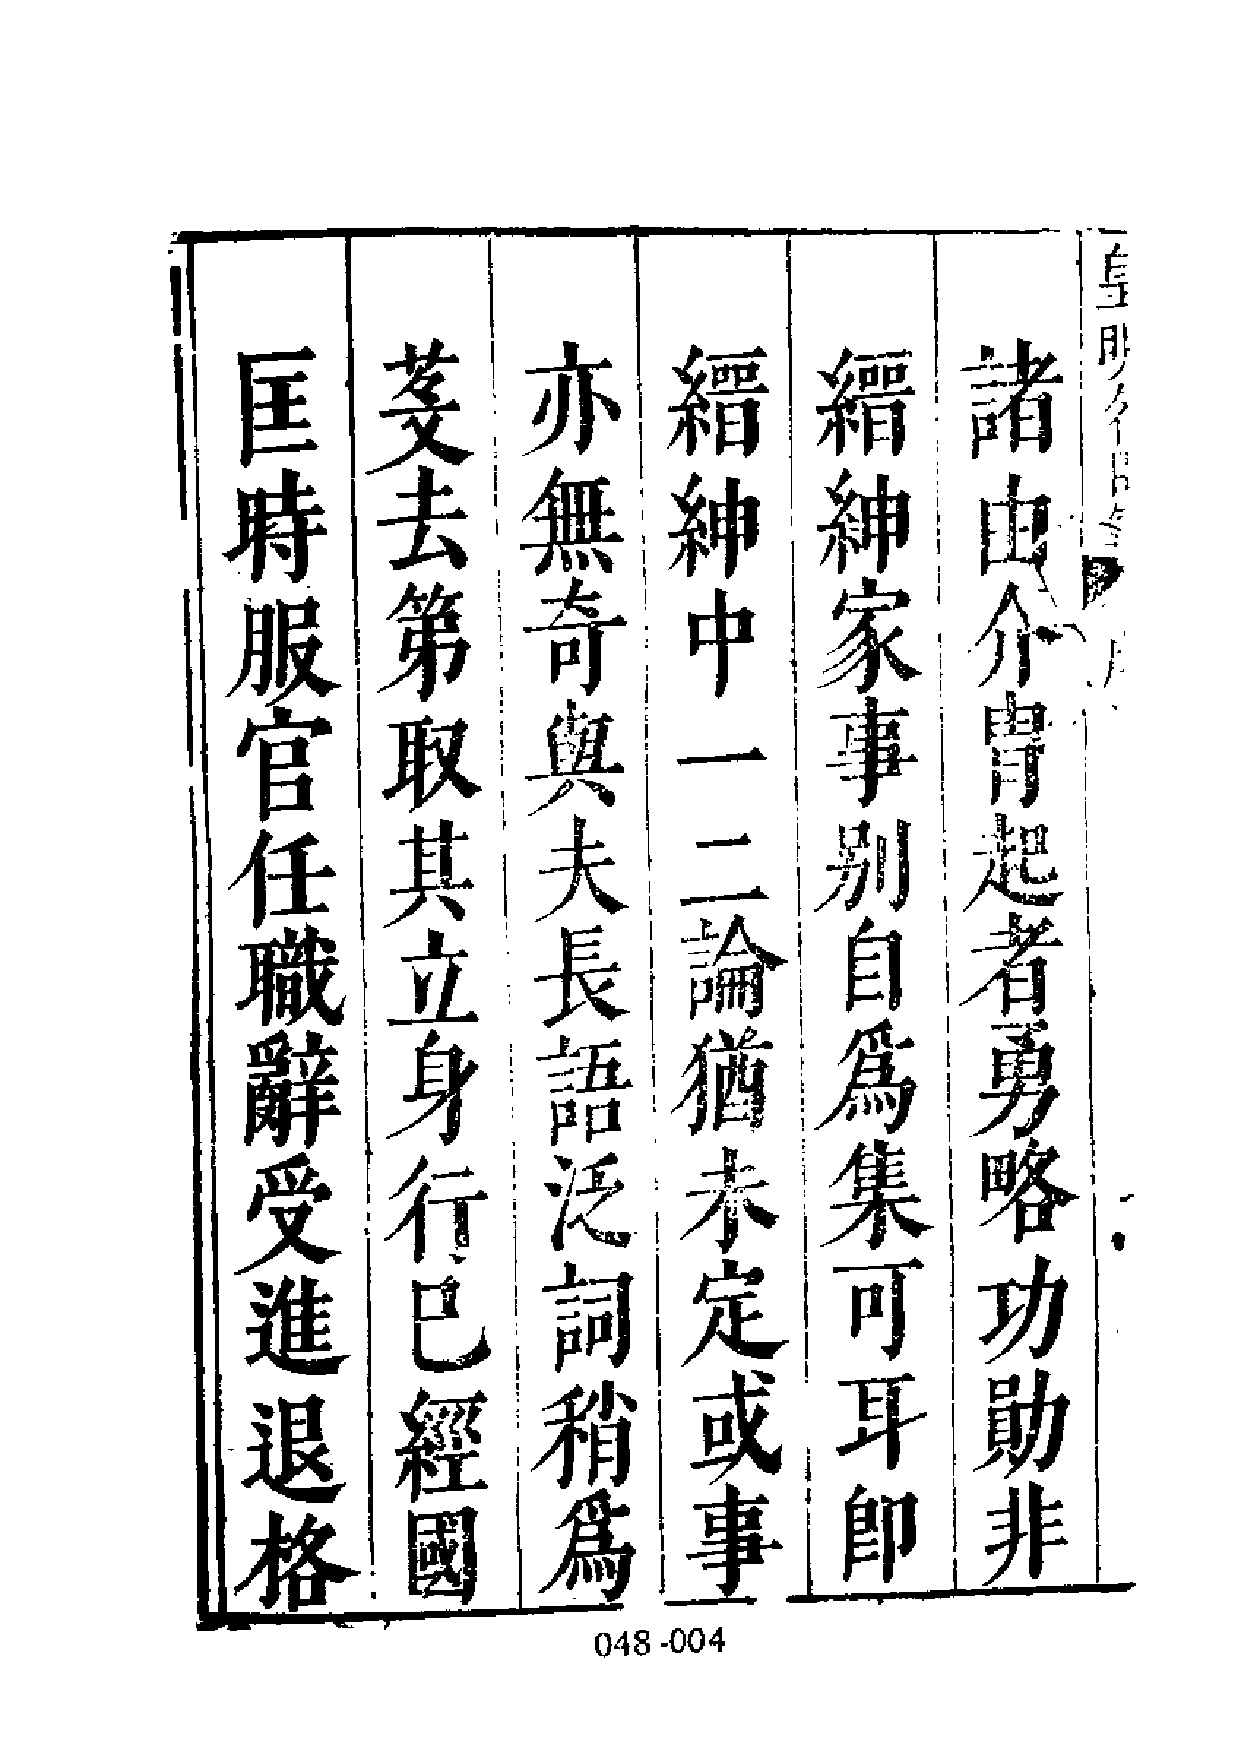 諸由介冑起者勇略功勛非
縉紳家事别自爲集可耳卽
縉紳中一二論猶未定或事
亦無奇與夫長語泛詞稍爲
芟去第取其立身行已經國
匡時服官任職辭受進退格
048-004